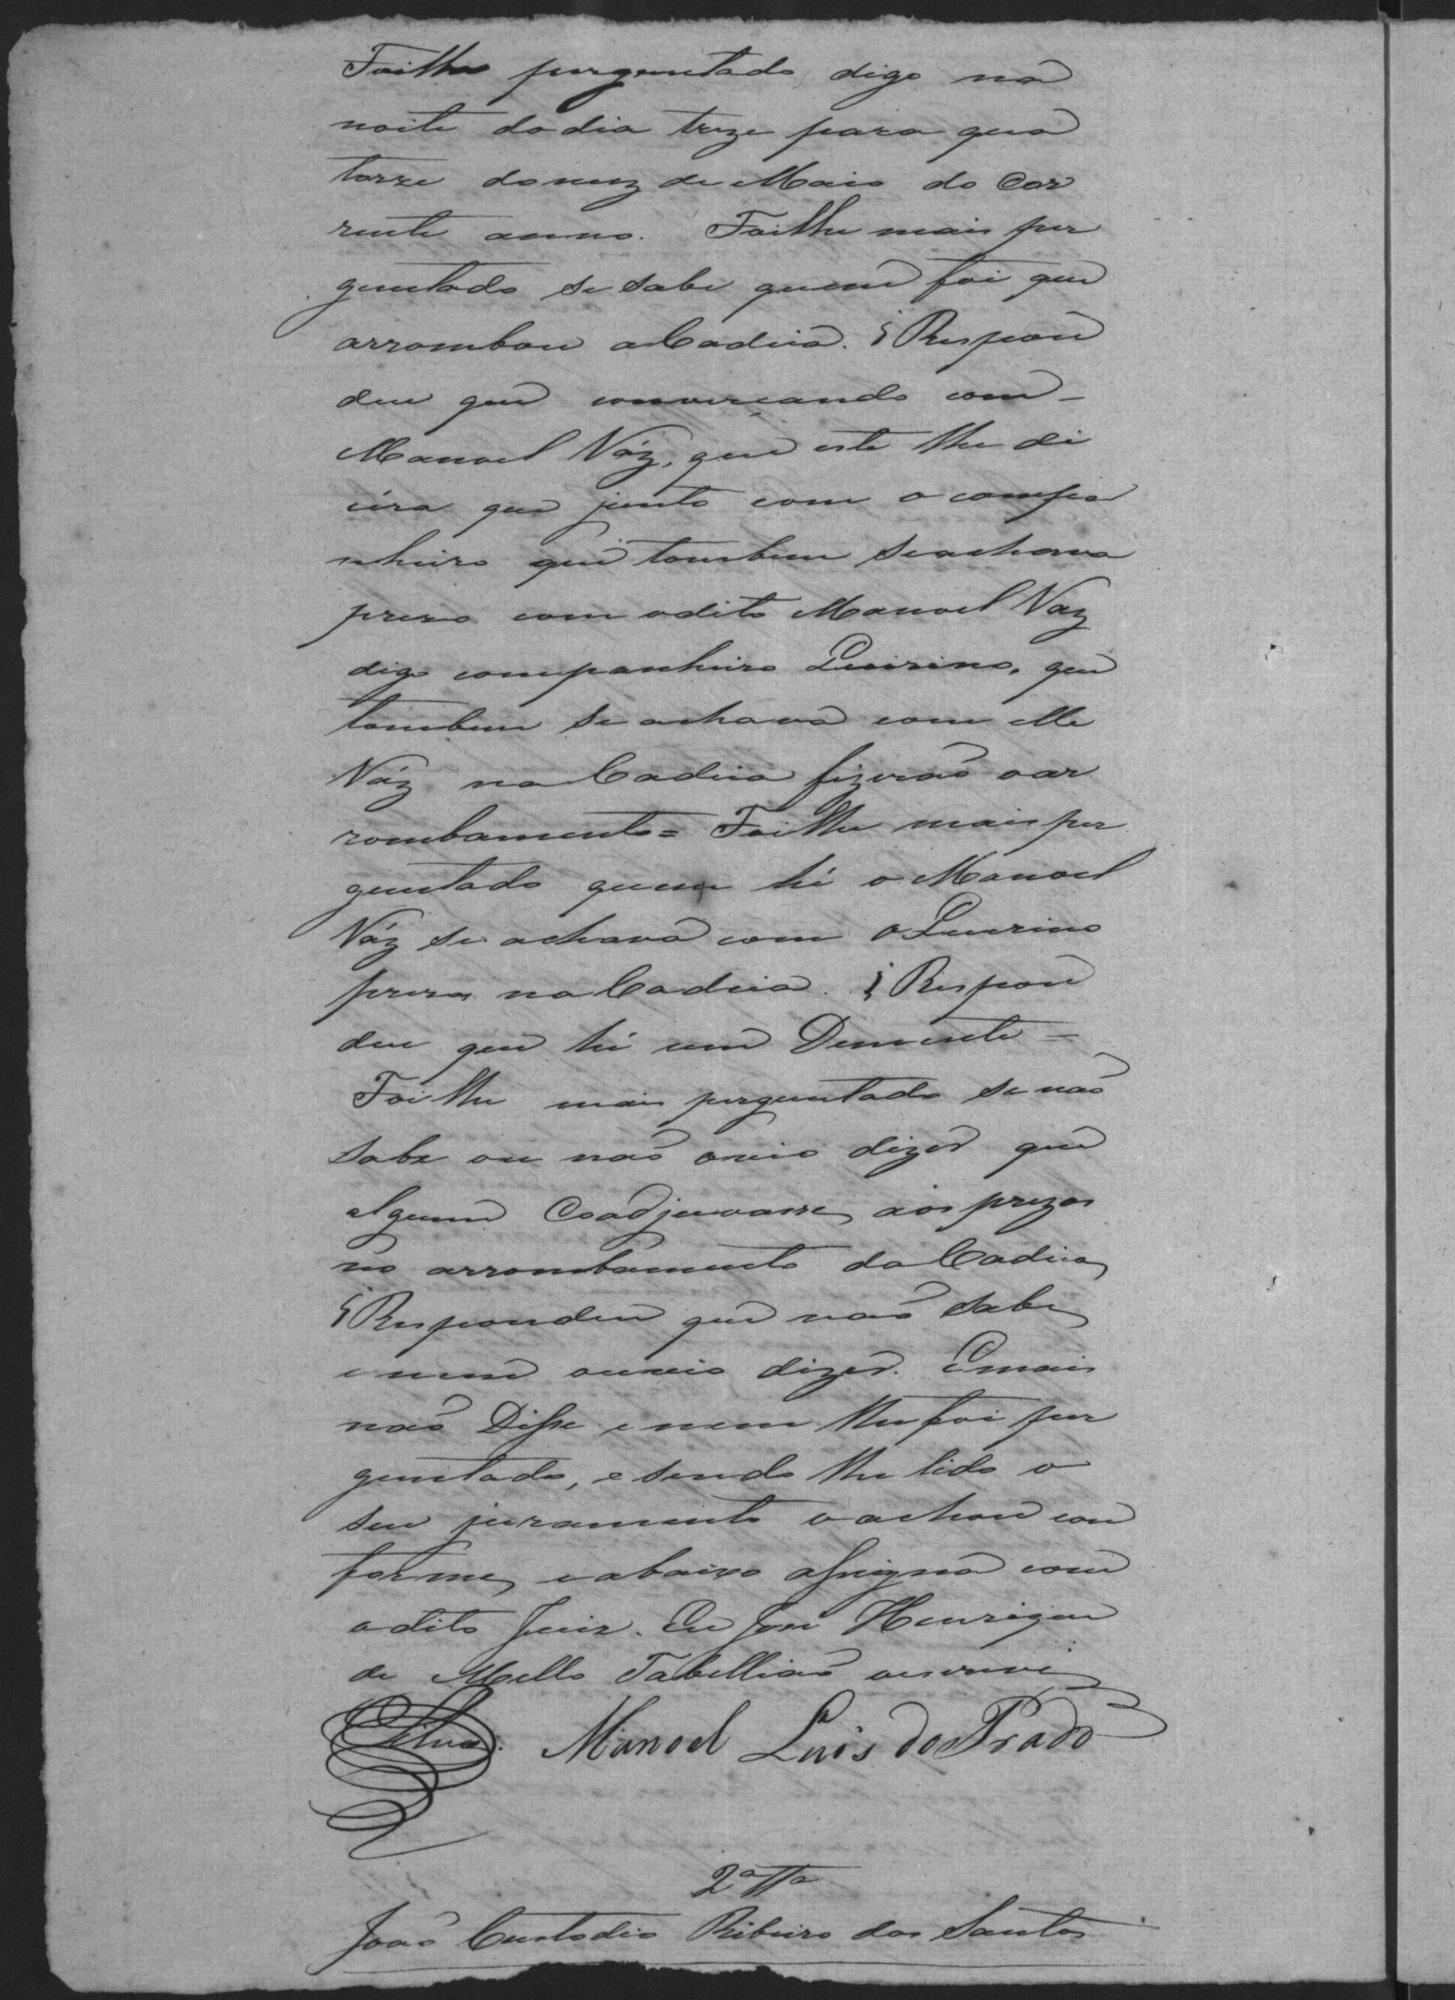 Foilhe perguntado digo na
noite do dia treze para qua
torze do mez de Maio do Cor
rente anno. Foilhe mais per
guntado se sabe quem foi que
arrombou a Cadeia. Respon
deu que converçando com
Manoel Váz, que este lhe di
cera que junto com o compa
nheiro que tambem se achava
prezo com o dito Manoel Vaz
digo companheiro Quirino, que
tambem se achava com elle
Váz na Cadeia fizerão o ar
rombamento = Foilhe mais per
guntado quem hé o Manoel
Váz se achava com o Quirino
prezos na Cadeia. Respon
deu que hé um Demente =
Foilhe mais perguntado se não
sabe ou não ouvio dizer que
alguem Coadjuvasse aos prezos
no arrombamento da Cadeia
Respondeu que não sabe
e nem ouvio dizer. E mais
não Disse e nem lhe foi per
guntado, e sendo lhe lido o
seu juramento o achou con
forme, e abaixo assigna com
o dito Juiz. Eu José Henrique
de Mello Tabellião escrevi
Silva. Manoel Luis do Prado
2ª Ttª
João Custodio Ribeiro dos Santos